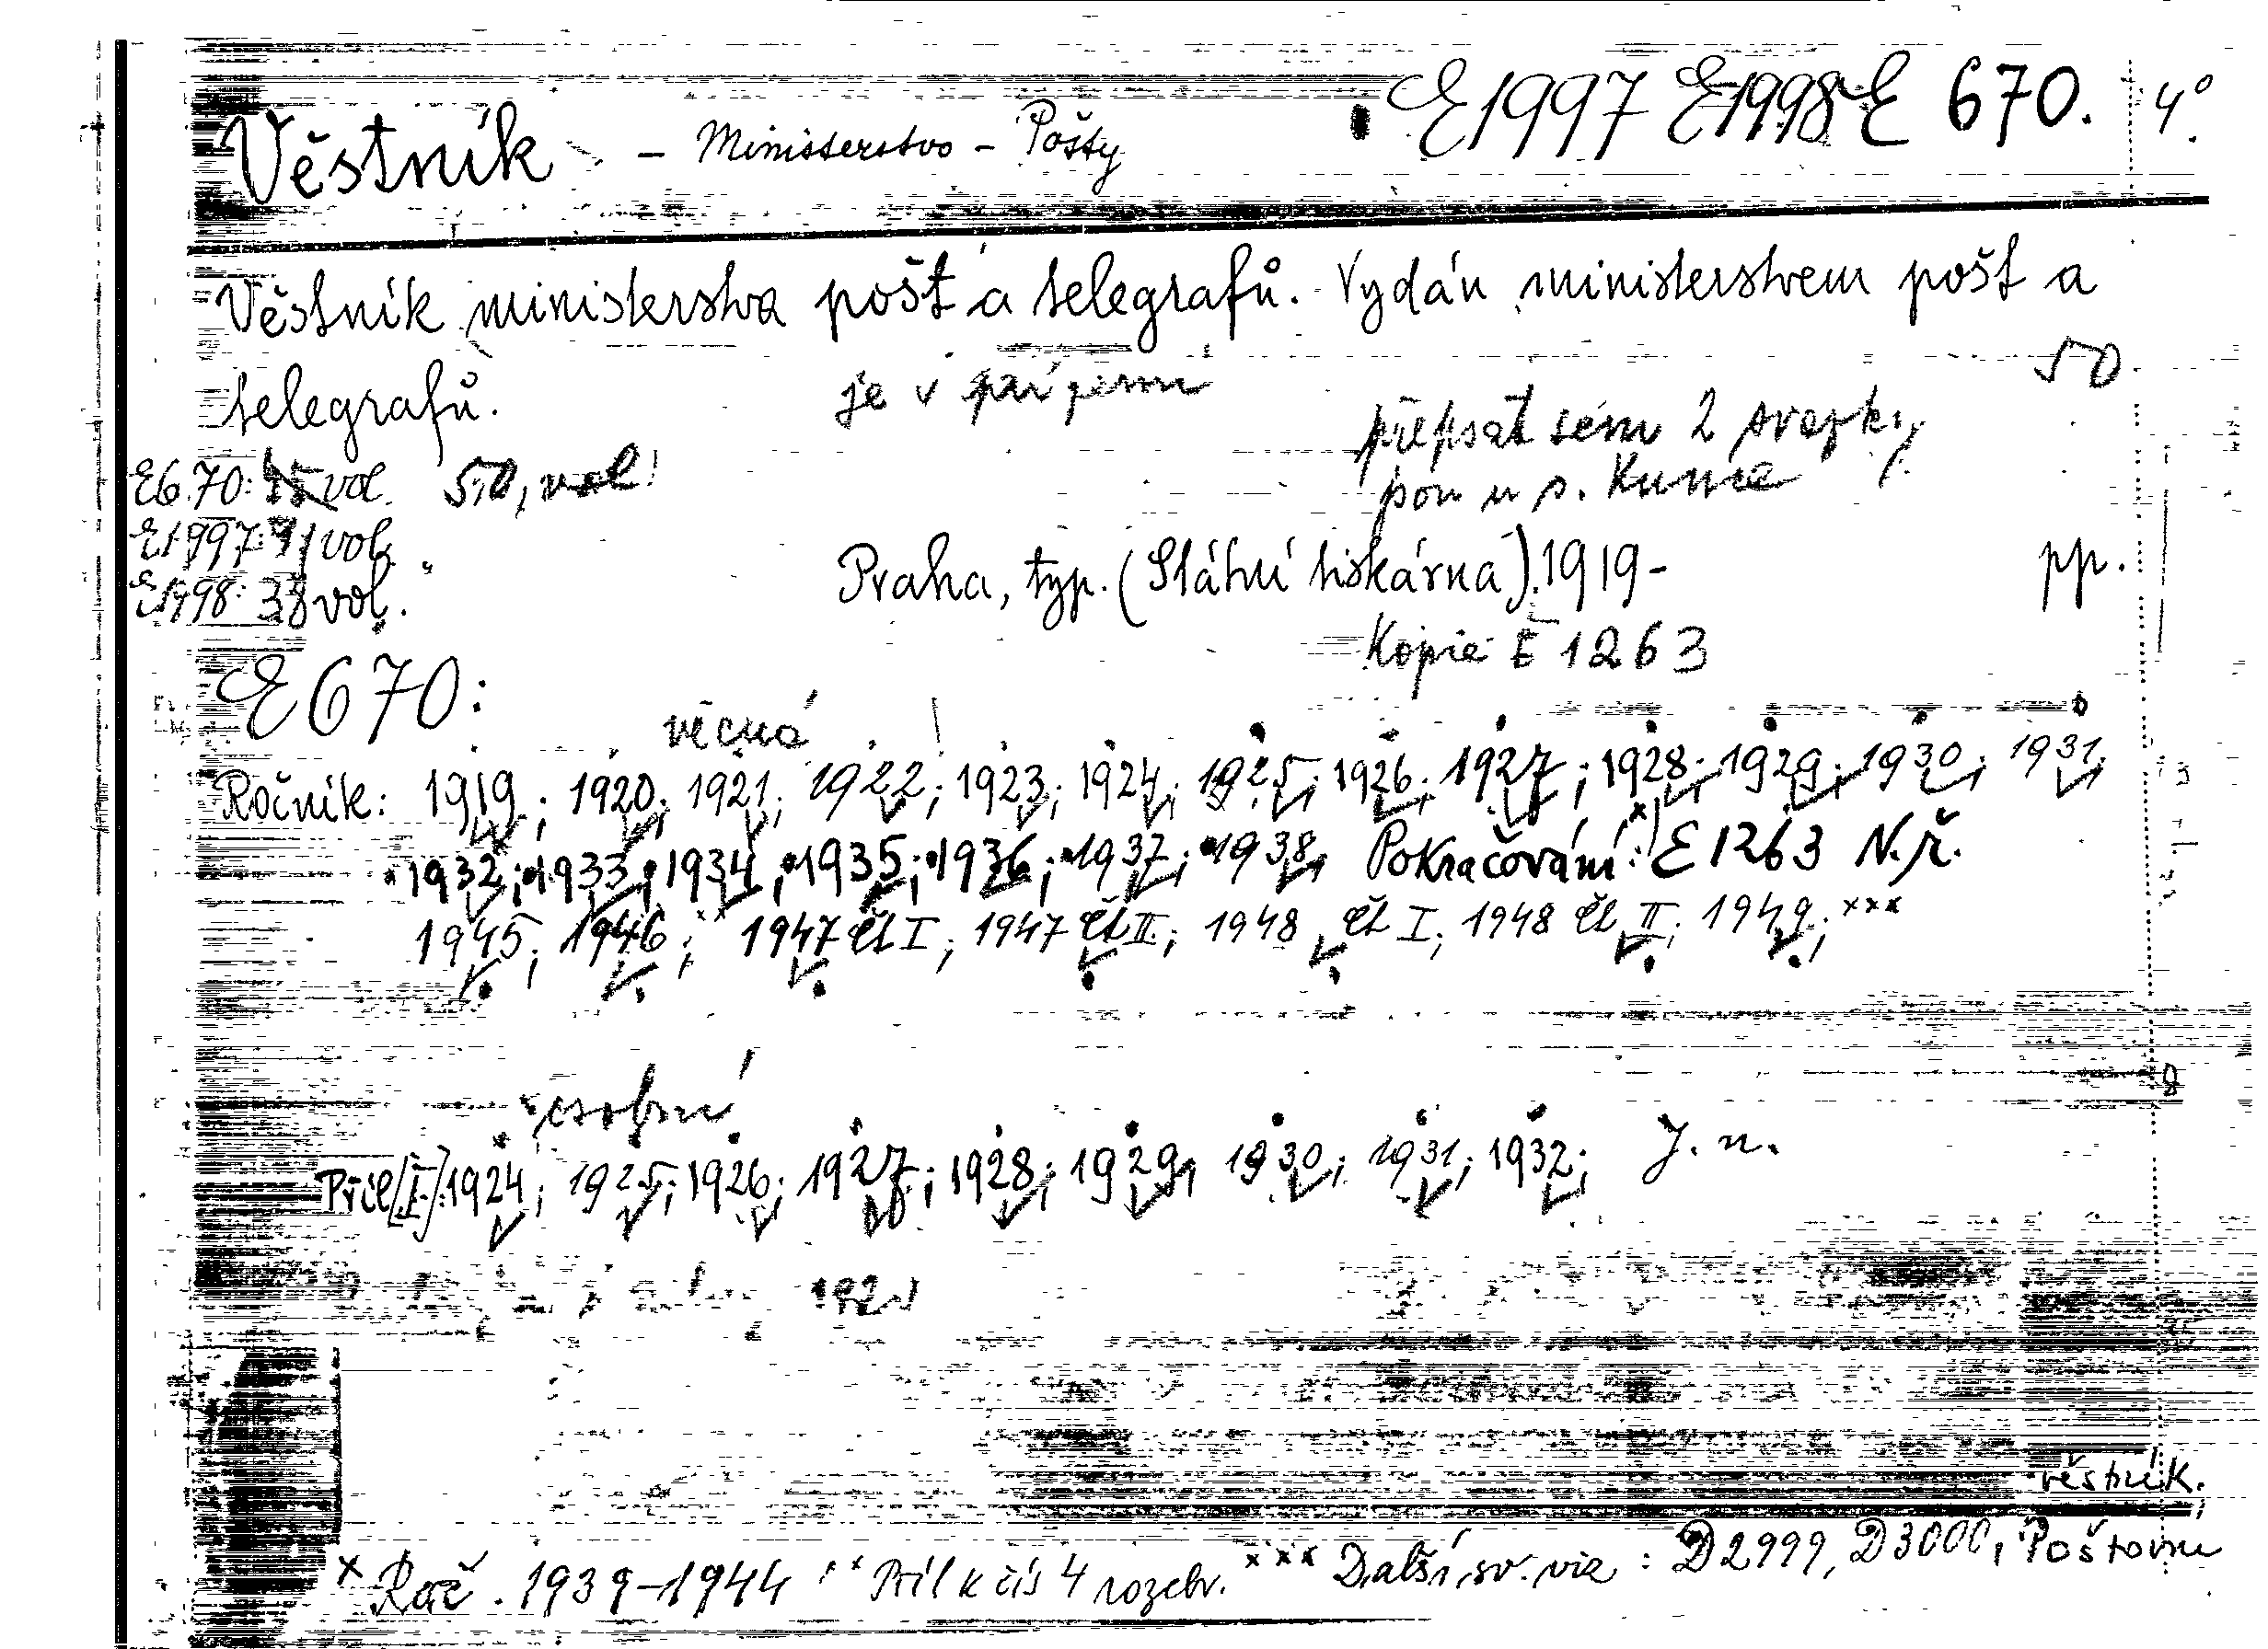 Věstník - Ministerstvo - Pošty E1997 E1998 E 670. 4°.
Věstník ministerstva pošt a telegrafů. Vydán ministerstvem pošt a
telegrafů. je v 50
přepsat sem 2 svazky
E670: vol. 50, vol! pou u s.
E1997: vol.
E1998: 38 vol. Praha, typ. (Státní tiskárna). 1919- pp.
Kopie E 1263
E 670:
věcná
Ročník: 1919; 1920; 1921; 1922; 1923; 1924; 1925; 1926; 1927; 1928; 1929; 1930; 1931;
1932; 1933; 1934; 1935; 1936; 1937; 1938, Pokračování: x) E 1263 N.ř.
1945; 1946; xx 1947 čt I; 1947 čt II.; 1948 čt I; 1948 čt II; 1949; xxx
osobní
Příl [I.]: 1924; 1925; 1926; 1927; 1928; 1929, 1930; 1931; 1932; J. n.
věstník.
x Roč. 1939-1944 xx Příl k čís 4 rozebr. xxx Další sv. viz: D2999, D3000, Poštovní